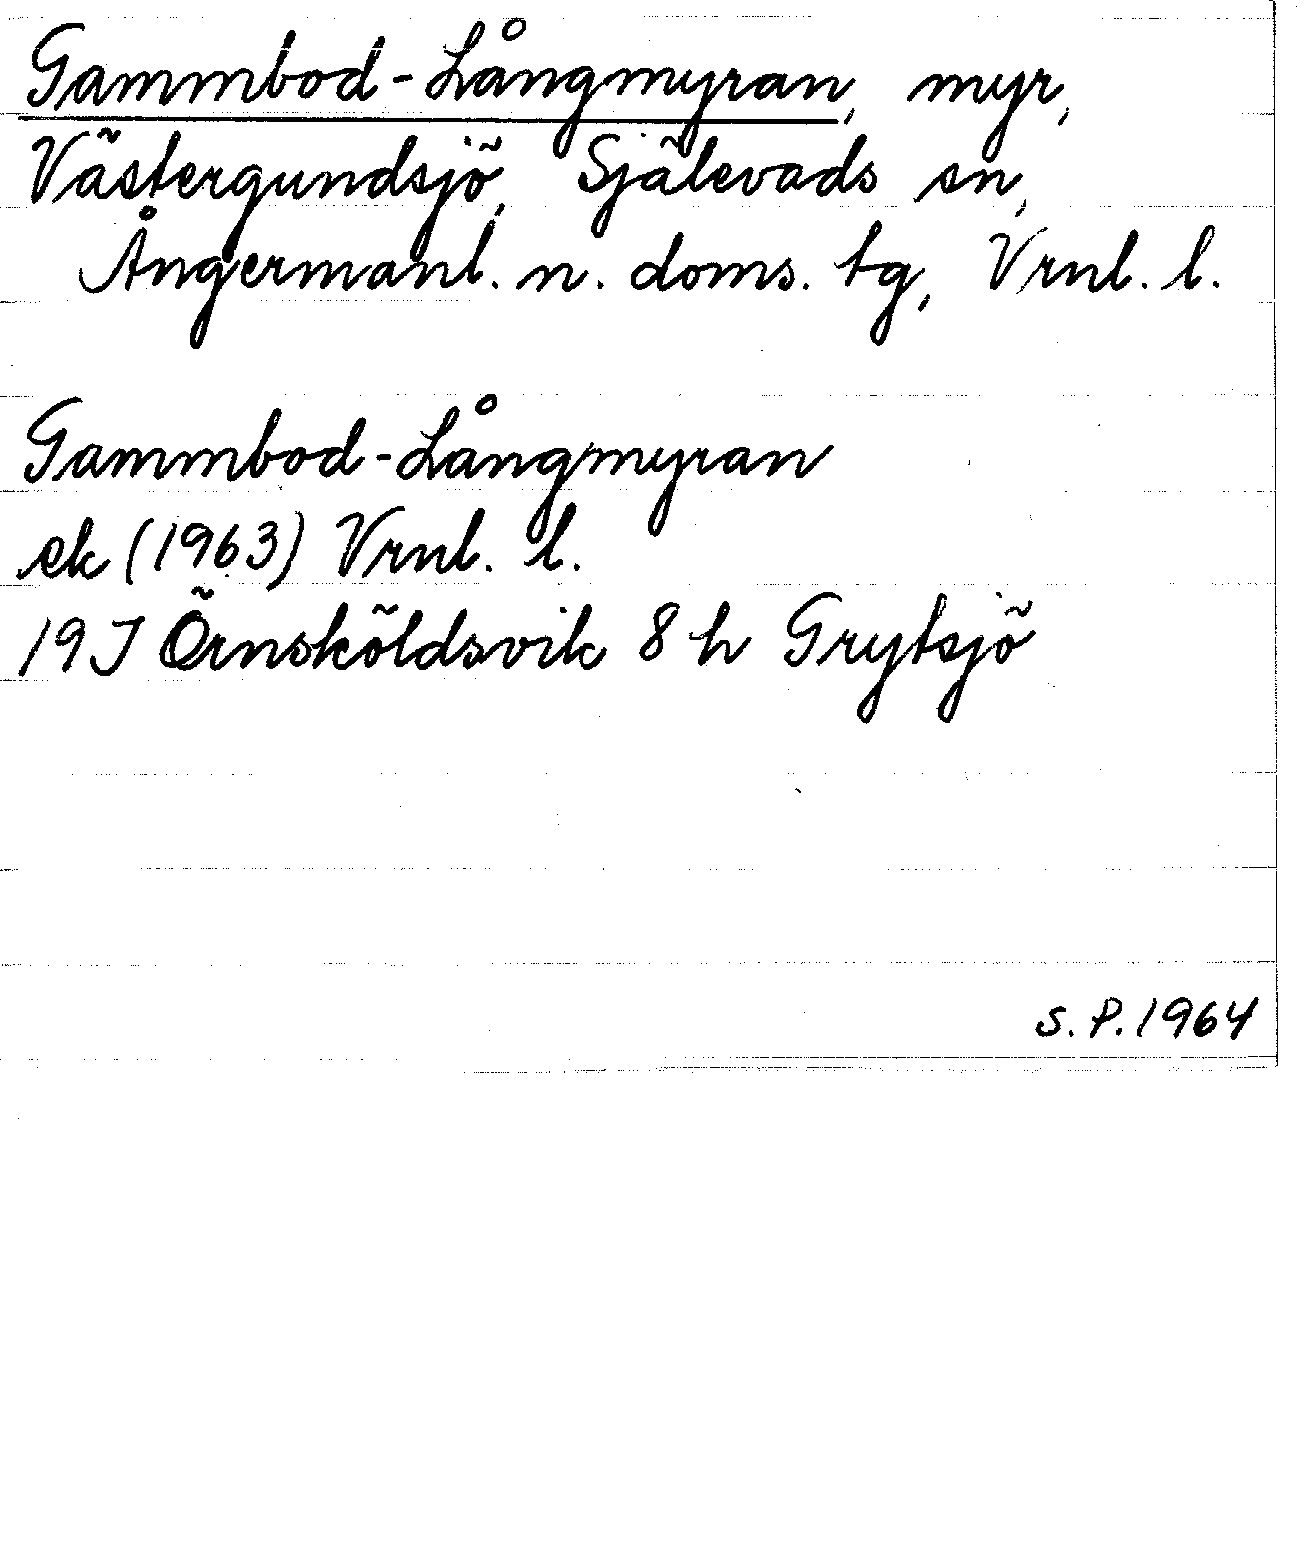 Gammbod-Långmyran, myr,
Västergundsjö, Själevads sn,
Ångermanl. n. doms. tg, Vrnl. l.
Gammbod-Långmyran
ek (1963) Vrnl. l.
19J Örnsköldsvik 8 h Grytsjö
S. P. 1964